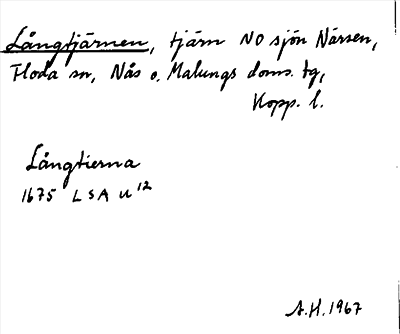 Långtjärnen, tjärn NO sjön Närsen,
Floda sn, Nås o. Malungs doms. tg,
Kopp. l.
Långtierna
1675 LSA U 12
A.H. 1967